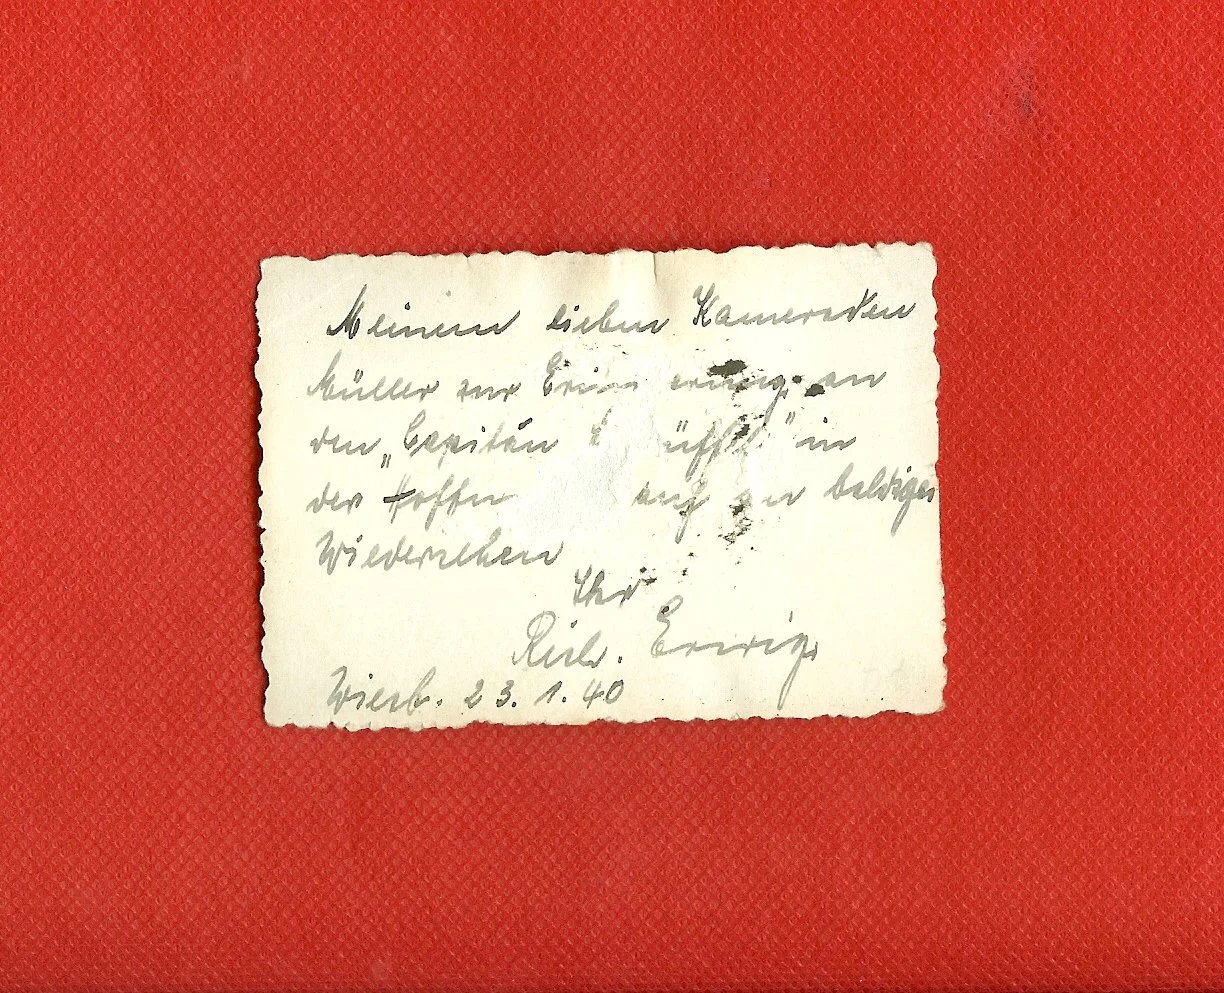 Meinem lieben Kameraden
Müller zur Erinnerung an
den „Capitän in
der auf ein baldiges
Wiedersehen
Ihr
Rich. Erwig.
Wiesb. 23.1.40